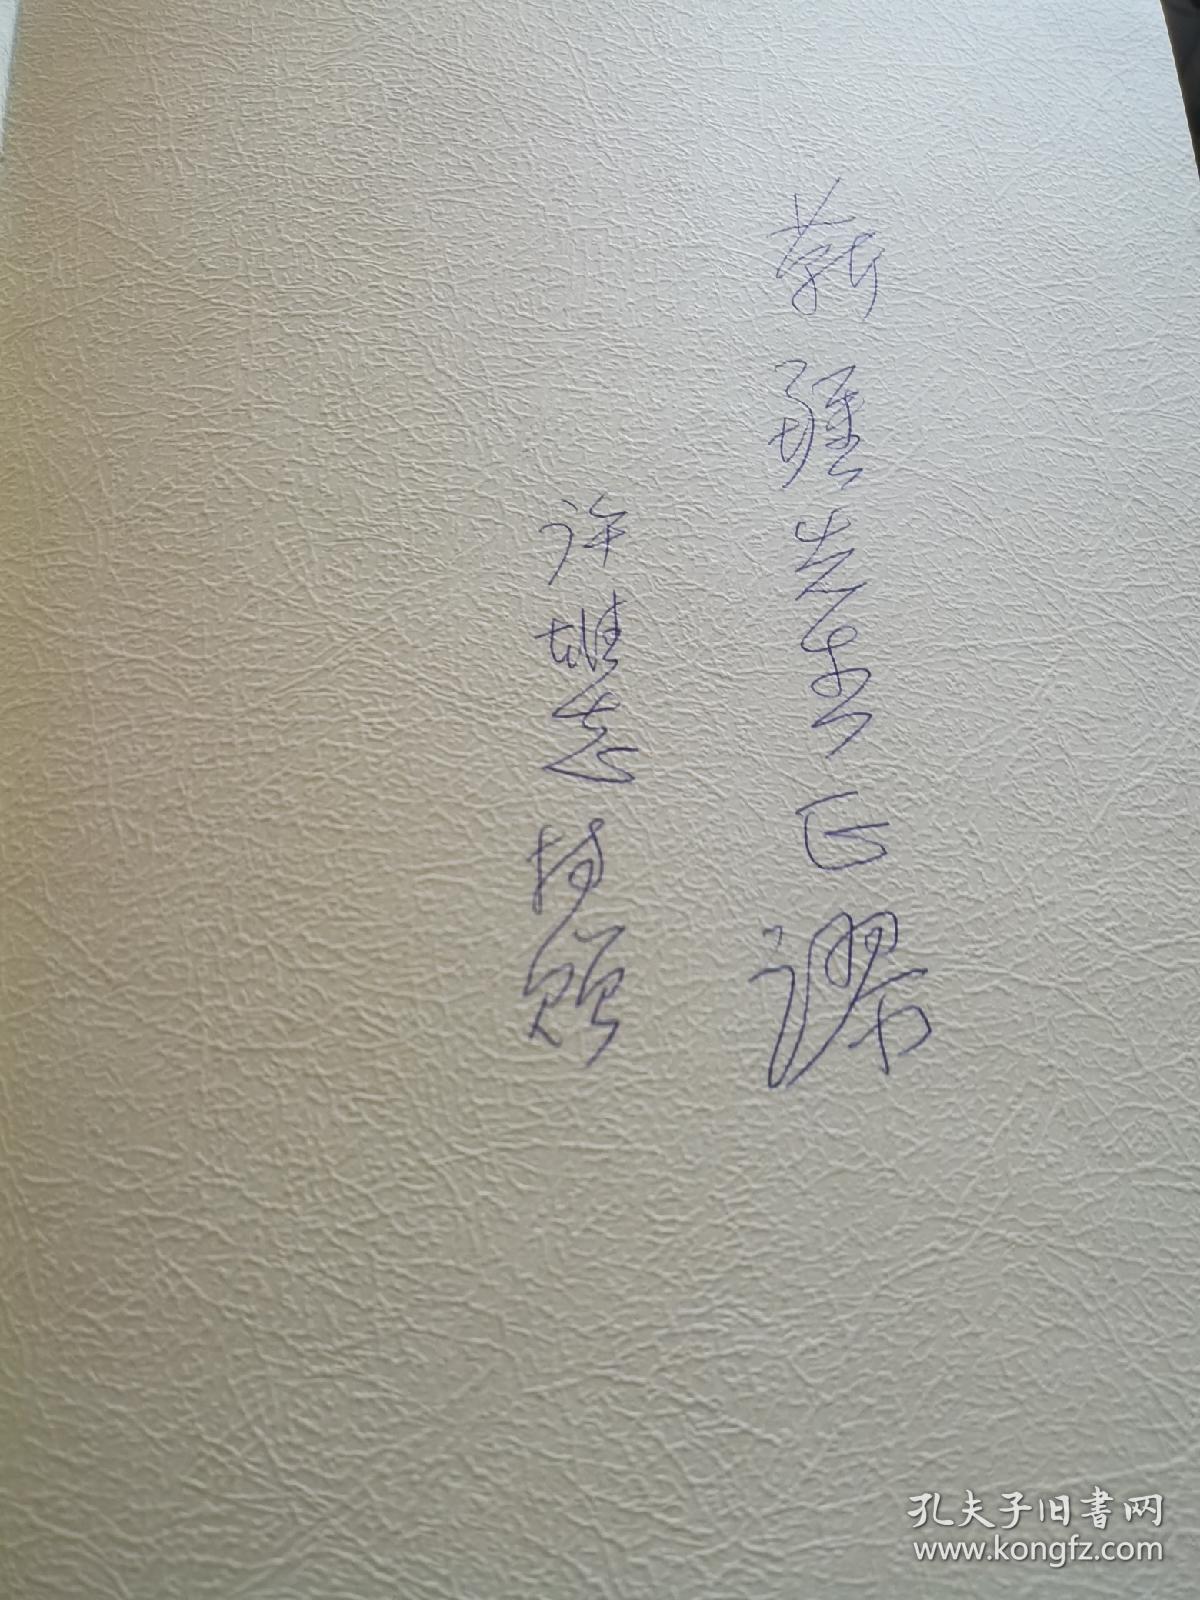 靳先生正谬
许雄志持赠
孔夫子旧書网
www.kongfz.com